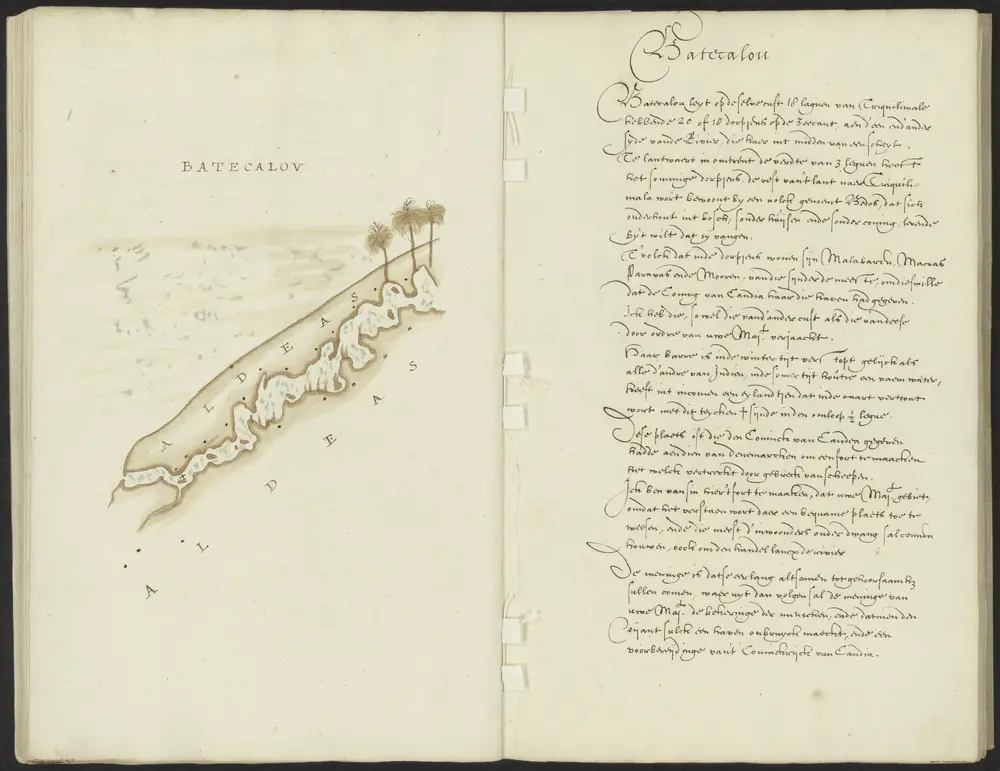 BATECALOV
ALDEAS
ALDEAS
Batecalou
Batecalou leyt op de selve cust 18 leguen van Triquilimale
hebbende 20 of 18 dorpjens op de Zeecant, aen d'een end ander
syde vande Rivier, die haer int midden van een scheyt.
Te lantwaert in omtrent de verdte van 3 leguen heeft
het sommige dorpjens, de rest van't lant naer Triquili-
mala wort bewoont by een volck genoemt Bedos, dat sich
onderhout int bosch, sonder huijsen ende sonder coning, levende
by't wilt dat sy vangen.
T'volck dat inde dorpjens wonen sijn Malabaren, Macuas
Paravas ende Mooren, van die sijnder de meeste, om dies wille
dat de Coning van Candia haar die haven had gegeven.
Ick heb die, so wel die van d'ander cust als die van deese
door ordre van uwe Maj.t verjaecht.
Haar barre is inde winter tijt verstopt gelijck als
alle d'andre van Indien, inde somer tijt houtse een vaem water,
heeft int incomen een eylandtjen dat inde caart vertoont
wort met dit teycken † sijnde inden omloop ½ legue.
Dese plaets ist die den Coninck van Candea gegeven
hadde aen dien van Denemarcken om een fort te maacken
het welck vertreckt door gebreck van scheepen.
Ick ben van sin hier t'fort te maaken, dat uwe Maj.t gebiet,
omdat het verstaen wort daer een bequame plaets toe te
weesen, ende die meest d'inwoonders onder dwang sal connen
houwen, oock om den handel lancx de rivier
De meninge is datse eerlang altsamen tot gehoorsaamh.t
sullen comen, waer uyt dan volgen sal de meninge van
uwe Maj.t de bekeringe der menschen, ende datmen den
vijant sulck een haven onbruyck maeckt, ende een
voorbereijdinge van't Coninckrijck van Candia.